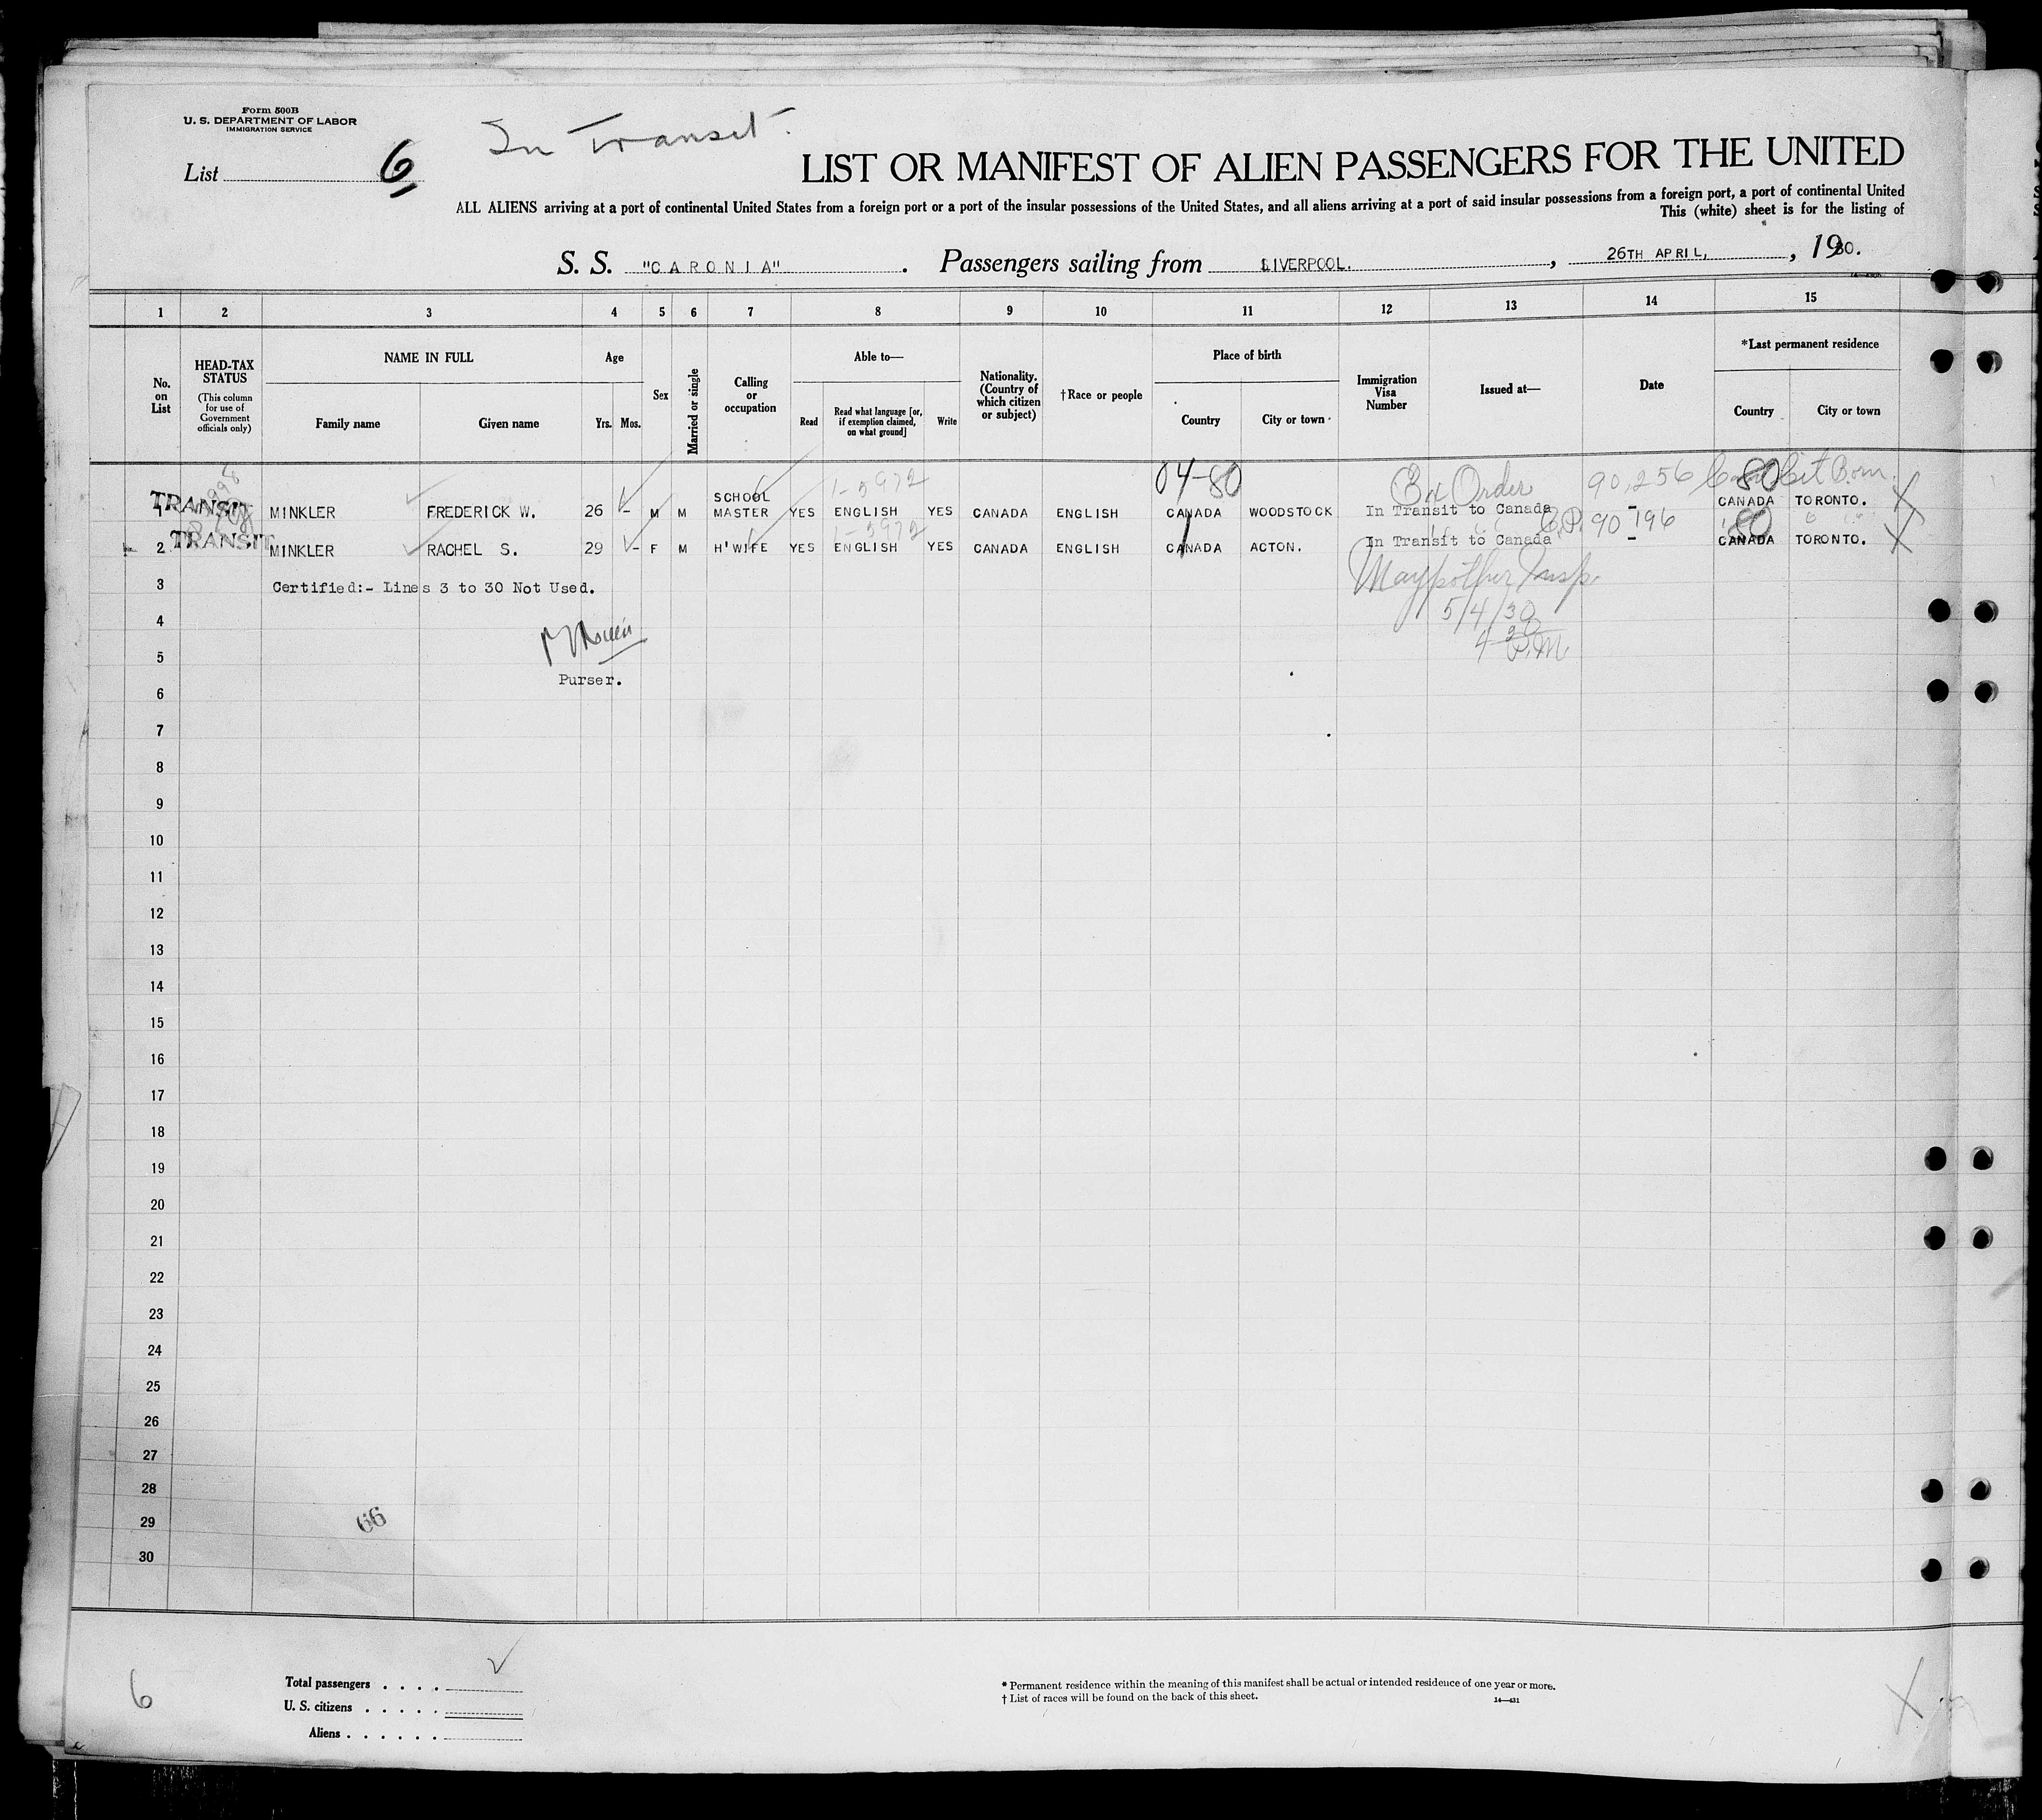 Form 500B
U. S. DEPARTMENT OF LABOR
IMMIGRATION SERVICE
In Transit.
List 6
LIST OR MANIFEST OF ALIEN PASSENGERS FOR THE UNITED
ALL ALIENS arriving at a port of continental United States from a foreign port or a port of the insular possessions of the United States, and all aliens arriving at a port of said insular possessions from a foreign port, a port of continental United
This (white) sheet is for the listing of
S. S. "CARONIA" . Passengers sailing from LIVERPOOL. , 26TH APRIL, , 1930.
1 2 3 4 5 6 7 8 9 10 11 12 13 14 15
No. on List
HEAD-TAX STATUS (This column for use of Government officials only)
NAME IN FULL
Family name Given name
Age
Yrs. Mos.
Sex
Married or single
Calling or occupation
Able to—
Read Read what language [or, if exemption claimed, on what ground] Write
Nationality. (Country of which citizen or subject)
†Race or people
Place of birth
Country City or town
Immigration Visa Number
Issued at—
Date
*Last permanent residence
Country City or town
1-5972 04-80 Ex Order 90,256 80 Cit Born
TRANSIT
1 MINKLER FREDERICK W. 26 - M M SCHOOL MASTER YES ENGLISH YES CANADA ENGLISH CANADA WOODSTOCK In Transit to Canada CANADA TORONTO.
1-5972 90-196 80
TRANSIT
2 MINKLER RACHEL S. 29 - F M H'WIFE YES ENGLISH YES CANADA ENGLISH CANADA ACTON. In Transit to Canada CANADA TORONTO.
3 Certified:- Lines 3 to 30 Not Used.
Insp
5/4/30
4
4 20 P.M
5
Purser.
6
7
8
9
10
11
12
13
14
15
16
17
18
19
20
21
22
23
24
25
26
27
28
29
66
30
6
Total passengers . . . .
U. S. citizens . . . . .
Aliens . . . . . .
* Permanent residence within the meaning of this manifest shall be actual or intended residence of one year or more.
† List of races will be found on the back of this sheet.
14—431